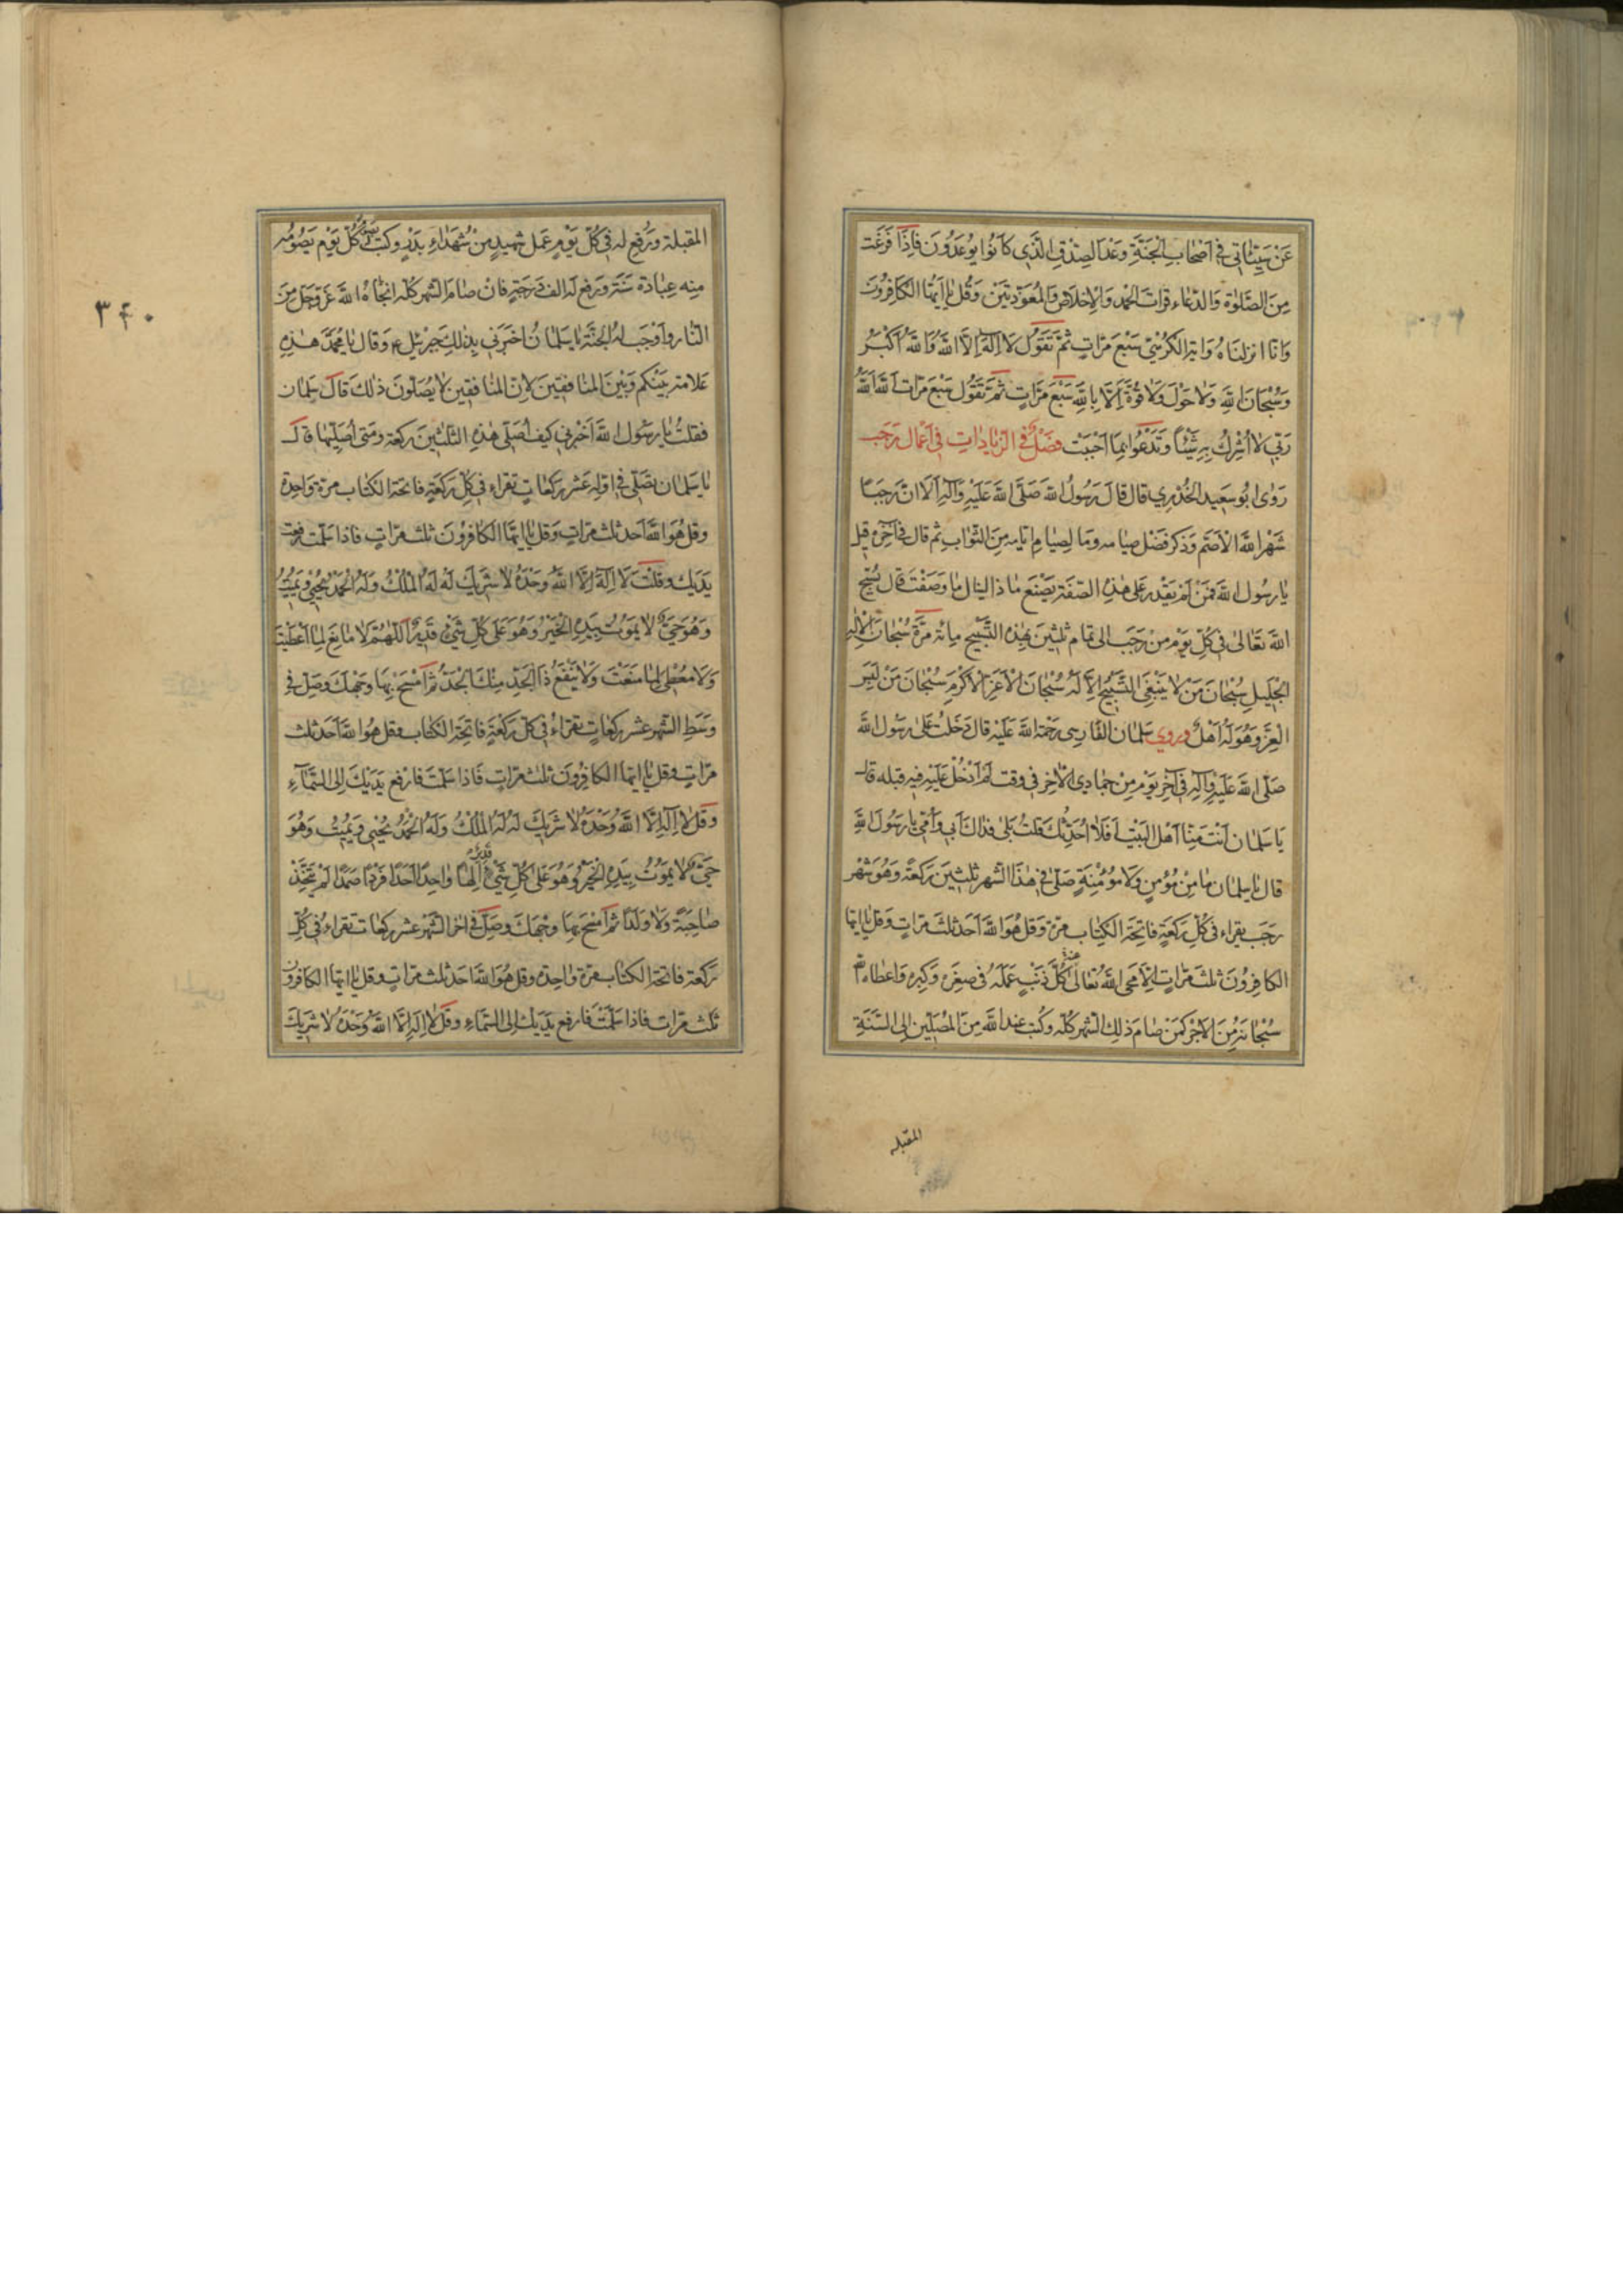 عَنْ سَيِّئَاتِي فِي اَصْحَابِ الْجَنَّةِ وَعْدَ الصِّدْقِ الَّذِي كَانُوا يُوعَدُونَ فَاِذَا فَرَغْتَ
مِنَ الصَّلٰوةِ وَالدُّعَاءِ قَرَاتَ الْحَمْدَ وَالْاِخْلَاصَ وَالْمُعَوَّذَتَيْنِ وَقُلْ يٰا اَيُّهَا الْكَافِرُونَ
وَاِنَّا انزلنَاهُ وَايَةَ الْكُرْسِيِّ سَبْعَ مَرَّاتٍ ثُمَّ تَقُولُ لَا اِلٰهَ اِلَّا اللَّهُ وَاللَّهُ اَكْبَرُ
وَسُبْحَانَ اللَّهِ وَلَا حَوْلَ وَلَا قُوَّةَ اِلَّا بِاللَّهِ سَبْعَ مَرَّاتٍ ثُمَّ تَقُولُ سَبْعَ مَرَّاتٍ اَللَّهُ اَللَّهُ
رَبِّي لَا اُشْرِكُ بِهِ شَيْئًا وَتَدْعُوا بِمَا اَحْبَبْتَ فصْلٌ فِي الزِّيَادَاتِ فِي اَعْمَالِ رَجَبٍ
رَوٰى ابُو سَعِيدٍ الْخُدْرِي قال قَالَ رَسُولُ اللَّهِ صَلَّى اللَّهُ عَلَيْهِ وَآلِهِ اَلَا انَّ رَجَبًا
شَهْرُ اللَّهِ الْاَصَمّ وَذكر فَضْل صِيامه وَمَا لِصِيَامِ ايّامِهِ مِنَ الثَّوَابِ ثم قال في آخِرِهِ قِيلَ
يٰا رسُولَ اللَّهِ فَمَنْ لَمْ يَقْدِرْ عَلَى هٰذِهِ الصِّفَةِ يَصْنَعُ مٰا ذا لينالَ مٰا وَصَفْتَ قَالَ يُسَبِّحُ
اللَّهَ تَعَالٰى فِي كُلِّ يَوْمٍ مِنْ رَجَبٍ الى تمام ثَلثِينَ بِهٰذِهِ التَّسْبِيحِ مِائَةَ مَرَّةٍ سُبْحَانَ الْاِلٰهِ
الْجَلِيلِ سُبْحَانَ مَنْ لَا يَنْبَغِي التَّسْبِيحُ اِلَّا لَهُ سُبْحَانَ الْاَعَزِّ الْاَكْرَمِ سُبْحَانَ مَنْ لَبِسَ
الْعِزَّ وَهُوَ لَهُ اَهْلٌ وروي سَلمان الفَارِسِي رَحْمَة اللَّهِ عَلَيْهِ قَالَ دَخَلْتُ عَلٰى رَسُولِ اللَّهِ
صَلَّى اللَّهُ عَلَيْهِ وَآلِهِ فِي آخِرِ يَوْمٍ مِنْ جُمَادِي الْاٰخِرِ فِي وَقتٍ لَمْ اَدْخُلْ عَلَيْهِ فِيهِ قَبْلَه قال
يَا سَلمَان اَنْتَ مِنَّا اَهْلَ الْبَيْتِ اَفَلَا اُحَدِّثُكَ قُلْتُ بَلٰى فِدَاكَ اَبِي وَاُمِّي يَا رَسُولَ اللَّهِ
قَالَ يٰا سَلمَان مٰا مِنْ مُؤْمِنٍ وَلَا مُؤْمِنَةٍ صَلّٰى فِي هٰذَا الشَّهْرِ ثَلثِينَ رَكْعَةً وَهُوَ شَهْرُ
رَجَبٍ يقراء فِي كُلِّ رَكْعَةٍ فَاتِحَةَ الْكِتَابِ مرّة وَقُلْ هُوَ اللَّهُ اَحَد ثَلثَ مَرّاتٍ وَقُلْ يٰا ايّها
الكافِرُونَ ثَلثَ مَرّاتٍ اِلَّا مَحَى اللَّهُ تَعَالٰى عنه كُلَّ ذَنْبٍ عَمِلَهُ فِي صِغَرِهِ وَكِبَرِهِ وَاَعْطَاهُ اللَّه
سُبْحَانَهُ مِنَ الْاَجْرِ كَمَنْ صَامَ ذٰلِكَ الشَّهْرَ كُلَّهُ وَكُتِبَ عِنْدَ اللَّهِ مِنَ الْمُصَلِّينَ اِلَى السَّنَةِ
المقبلة
المقبلة وَرُفِعَ لَه فِي كُلِّ يَوْمٍ عَمَل شَهِيدٍ مِنْ شُهَدَاءِ بَدْرٍ وكتبَ لَه كُلّ يَوْمٍ يَصُومُه
مِنه عِبَادَة سَنَةٍ وَرُفِعَ لَه الف دَرَجَةٍ فَانْ صَامَ الشَّهْرَ كُلَّه انجَاهُ اللَّهُ عَزَّ وَجَلَّ مِنَ
النَّارِ وَاَوْجَبَ لَهُ الْجَنَّةَ يٰا سَلمَانُ اَخْبَرَنِي بِذٰلِكَ جِبْرَئِيلُ ع وَقَالَ يٰا مُحَمَّدُ هٰذِهِ
عَلَامَة بَيْنَكم وَبَيْنَ الْمُنٰافِقِينَ لِاَنَّ الْمُنٰافِقِينَ لَا يُصَلُّونَ ذٰلِكَ قَالَ سَلمَان
فَقلتُ يٰا رَسُولَ اللَّهِ اَخْبِرْنِي كَيْفَ اُصَلِّي هٰذِهِ الثَّلثِينَ رَكْعَة وَمَتٰى اُصَلِّيهَا قال
يٰا سَلمَان تصَلّي فِي اوّلِهِ عَشْرَ رَكَعَاتٍ تَقْرَاءُ فِي كُلِّ رَكْعَةٍ فَاتِحَة الكتَاب مرّة وَاحِدَة
وَقُلْ هُوَ اللَّهُ اَحَد ثَلثَ مَرّاتٍ وَقُلْ يٰا ايُّهَا الكَافِرُونَ ثَلثَ مَرّاتٍ فَاذا سَلّمت رفعت
يَدَيكَ وَقُلْتَ لَا اِلٰهَ اِلَّا اللَّهُ وَحْدَهُ لَا شَرِيكَ لَهُ لَهُ الْمُلْكُ وَلَهُ الْحَمْدُ يُحْيِي وَيُمِيتُ
وَهُوَ حَيٌّ لَا يَمُوتُ بِيَدِهِ الْخَيْرُ وَهُوَ عَلٰى كُلِّ شَيْءٍ قَدِيرٌ اَللّٰهُمَّ لَا مَانِعَ لِمَا اَعْطَيْتَ
وَلَا مُعْطِيَ لِمَا مَنَعْتَ وَلَا يَنْفَعُ ذَا الْجَدِّ مِنْكَ الْجَدُّ ثُمَّ امْسَحْ بِهَا وَجْهَكَ وَصَلِّ فِي
وَسَطِ الشَّهْرِ عَشْرَ رَكَعَاتٍ تَقْرَاءُ فِي كُلِّ رَكْعَةٍ فَاتِحَةَ الكتَابِ وَقُلْ هُوَ اللَّهُ اَحَد ثَلث
مَرّاتٍ وَقُلْ يٰا ايّهَا الكَافِرُونَ ثَلثَ مَرّاتٍ فَاذا سَلّمْتَ فَارْفَعْ يَدَيْكَ اِلَى السَّمَآءِ
وَقُلْ لَا اِلٰهَ اِلَّا اللَّهُ وَحْدَهُ لَا شَرِيكَ لَهُ لَهُ الْمُلْكُ وَلَهُ الْحَمْدُ يُحْيِي وَيُمِيتُ وَهُوَ
حَيٌّ لَا يَمُوتُ بِيَدِهِ الْخَيْرُ وَهُوَ عَلٰى كُلِّ شَيْءٍ قَدِيرٌ اِلٰهًا وَاحِدًا اَحَدًا فَرْدًا صَمَدًا لَمْ يَتَّخِذْ
صَاحِبَةً وَلَا وَلَدًا ثُمَّ امْسَحْ بِهَا وَجْهَكَ وَصَلِّ فِي آخِرِ الشَّهْرِ عَشْرَ رَكَعَات تَقراءُ فِي كُلِّ
رَكْعَة فَاتِحَة الكتَاب مرّة وَاحِدة وَقُلْ هُوَ اللَّهُ اَحَد ثَلثَ مَرّاتٍ وَقُلْ يٰا ايّهَا الكَافِرُونَ
ثَلثَ مَرّاتٍ فَاذا سَلّمْتَ فَارفَعْ يَدَيكَ اِلَى السَّمَاءِ وَقُلْ لَا اِلٰهَ اِلَّا اللَّهُ وَحْدَهُ لَا شَرِيكَ
٣٤٠